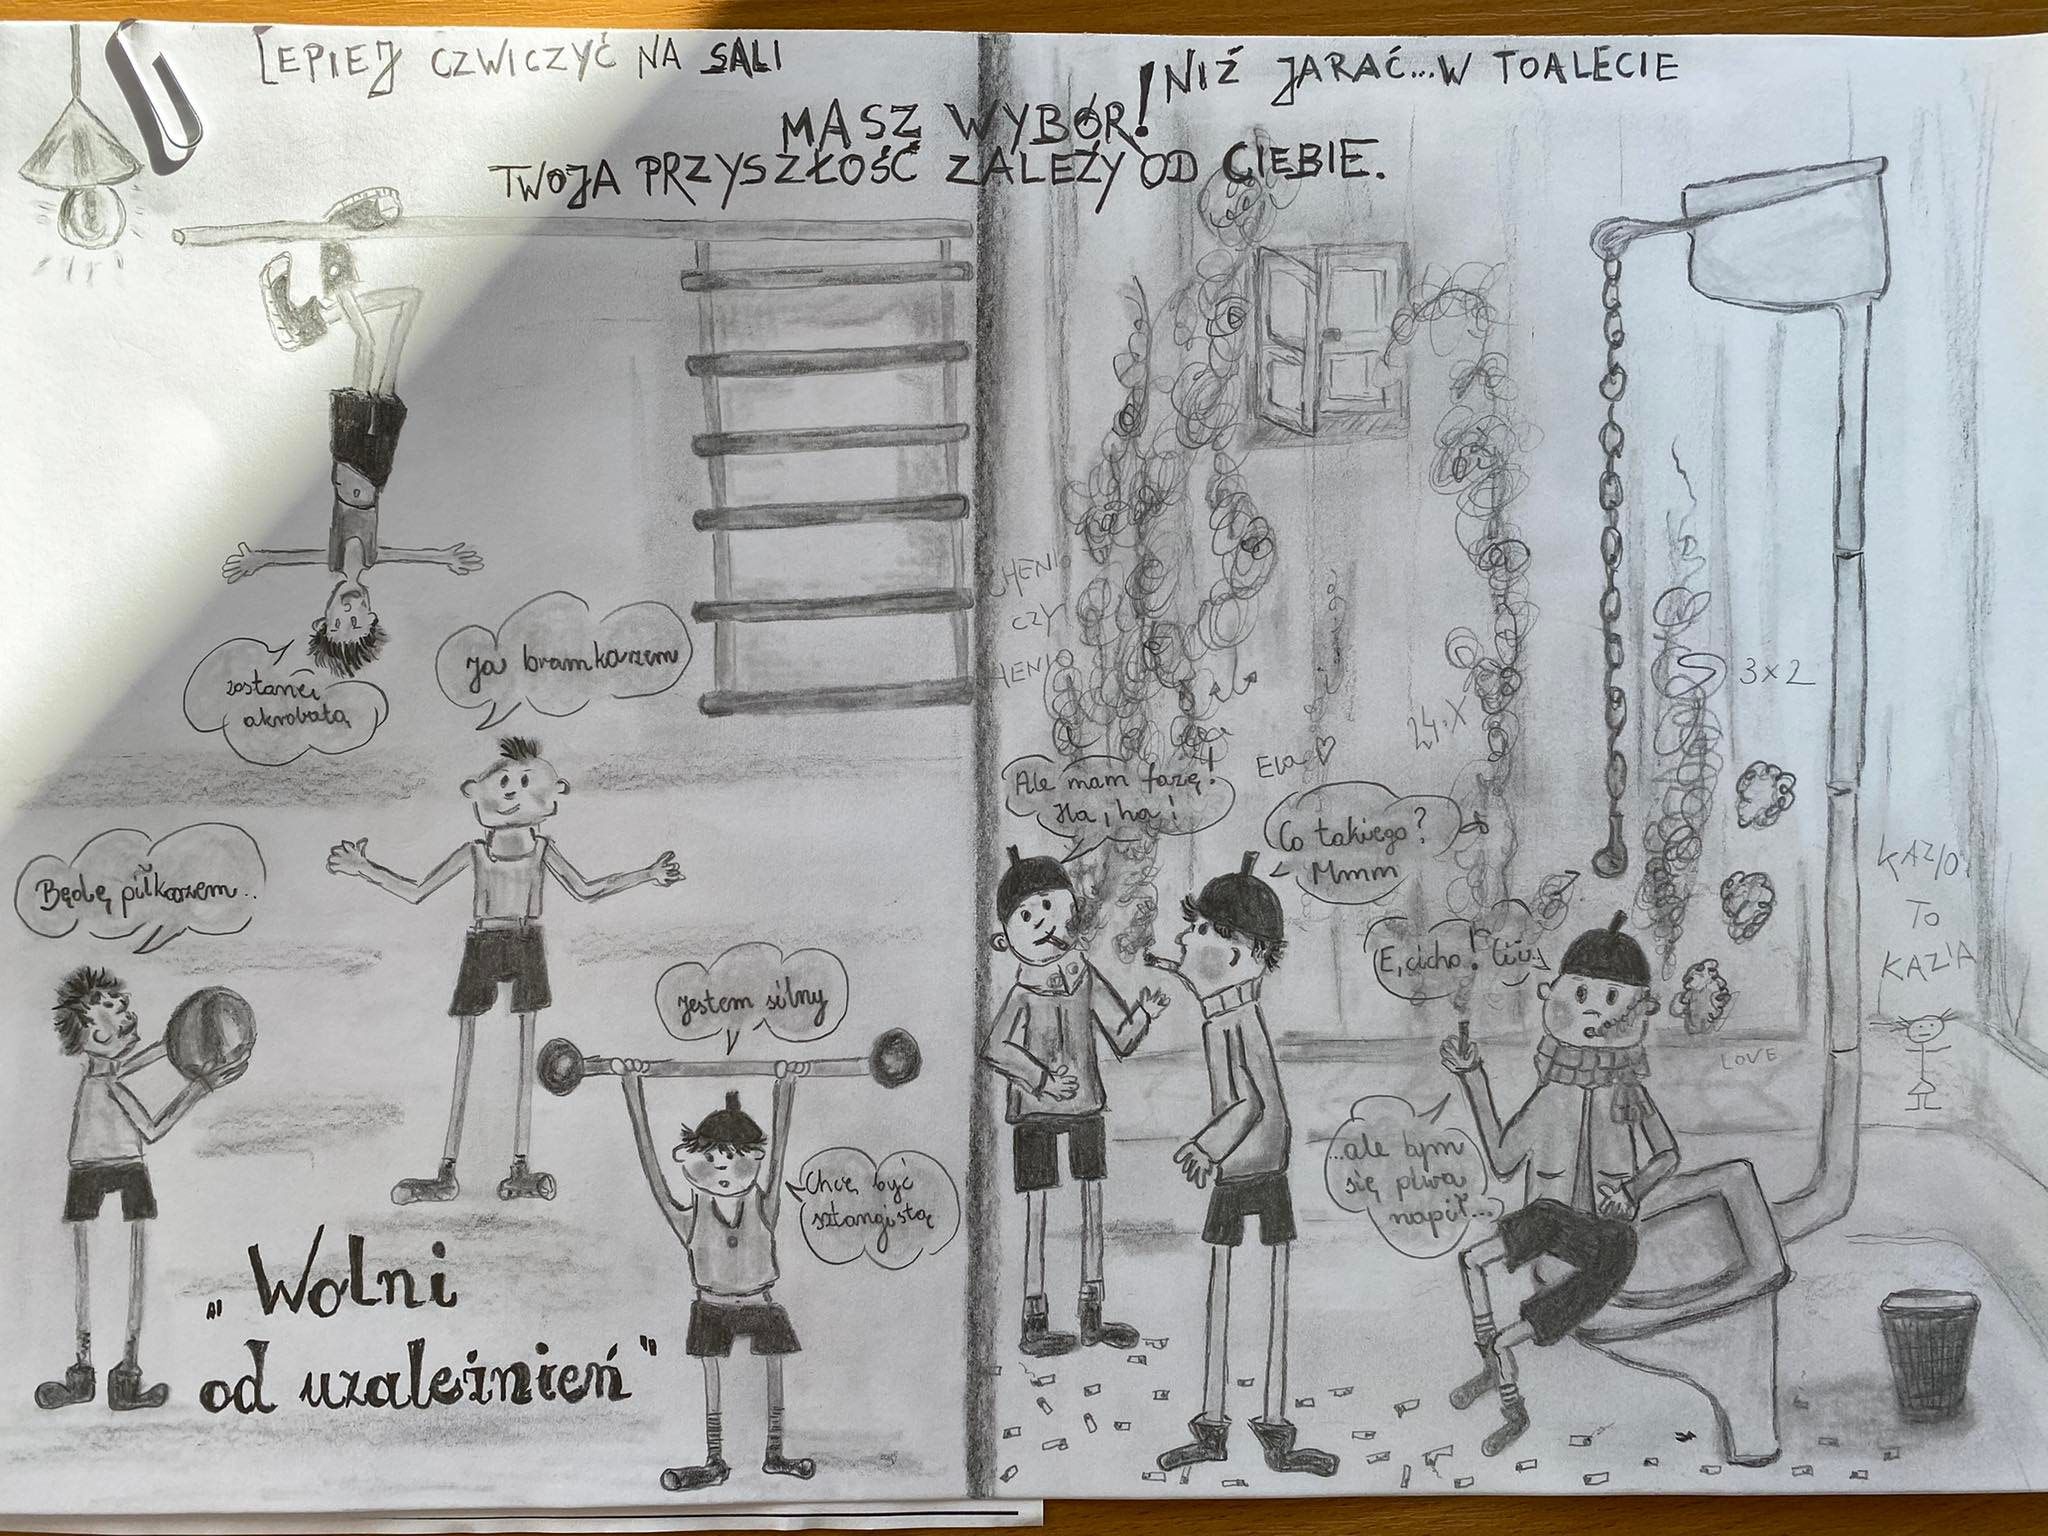 LEPIEJ CZWICZYĆ NA SALI
NIŻ JARAĆ...W TOALECIE
MASZ WYBÓR!
TWOJA PRZYSZŁOŚĆ ZALEŻY OD CIEBIE.
zostanę
akrobatą
Ja bramkarzem
Będę piłkarzem..
Jestem silny
Chcę być
sztangistą
„Wolni
od uzależnień"
HENIO
CZY
HENIO
Ewa ♡
24.X
3x2
Ale mam fazę!
Ha, ha!
Co takiego?
Mmm
E, cicho! Ciii.
...ale bym
się piwa
napił...
KAZIO
TO
KAZIA
LOVE